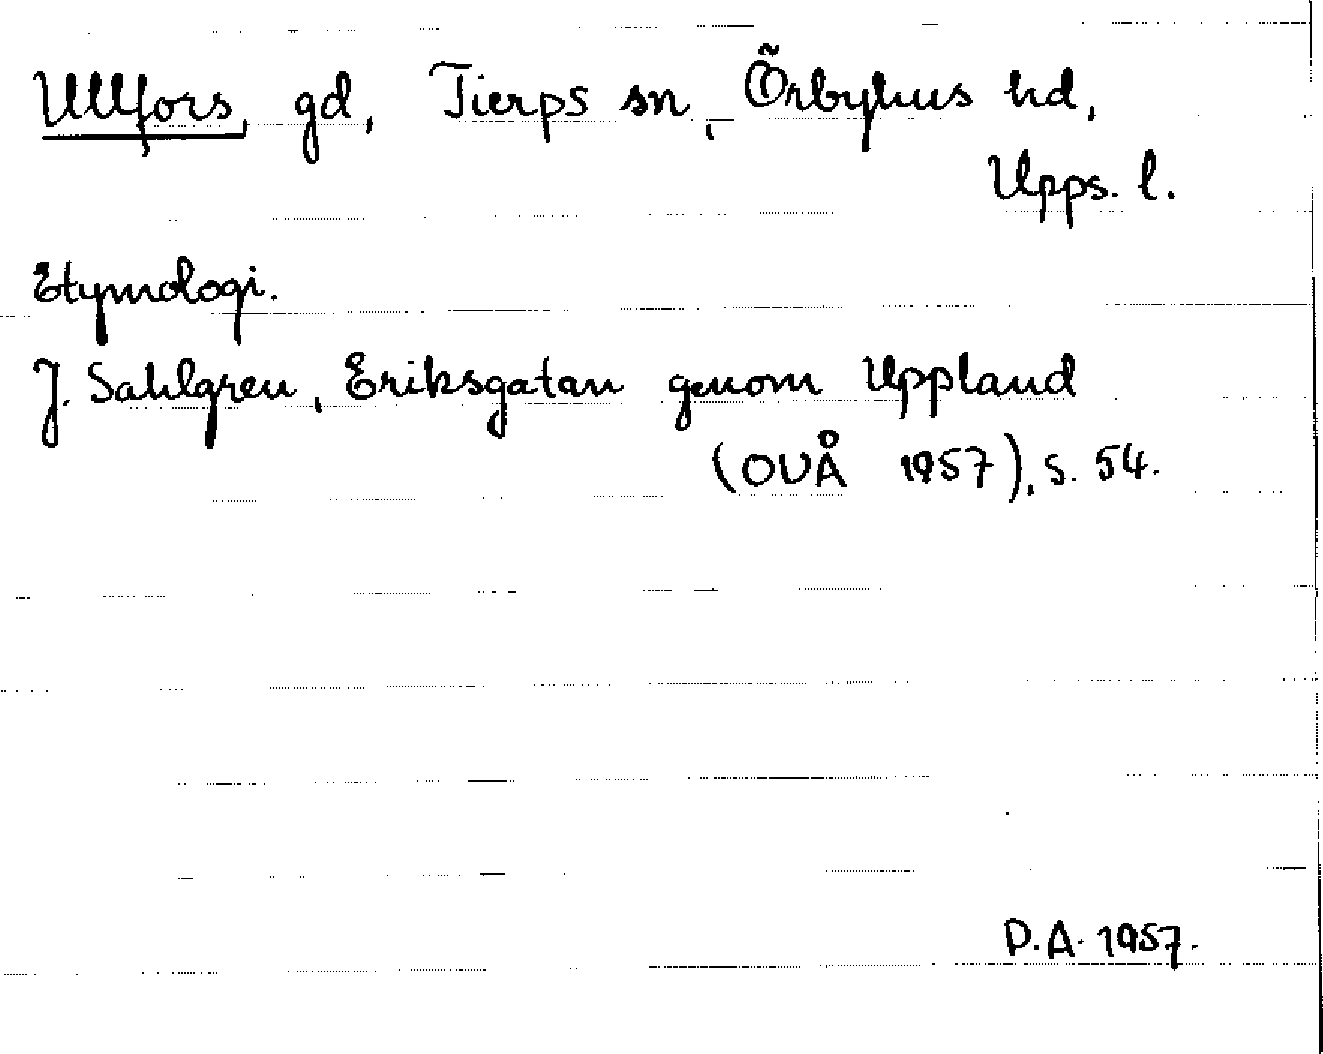 Ullfors, gd, Tierps sn, Örbyhus hd,
Upps. l.
Etymologi.
J. Sahlgren, Eriksgatan genom Uppland
(OUÅ 1957), s. 54.
P.A. 1957.